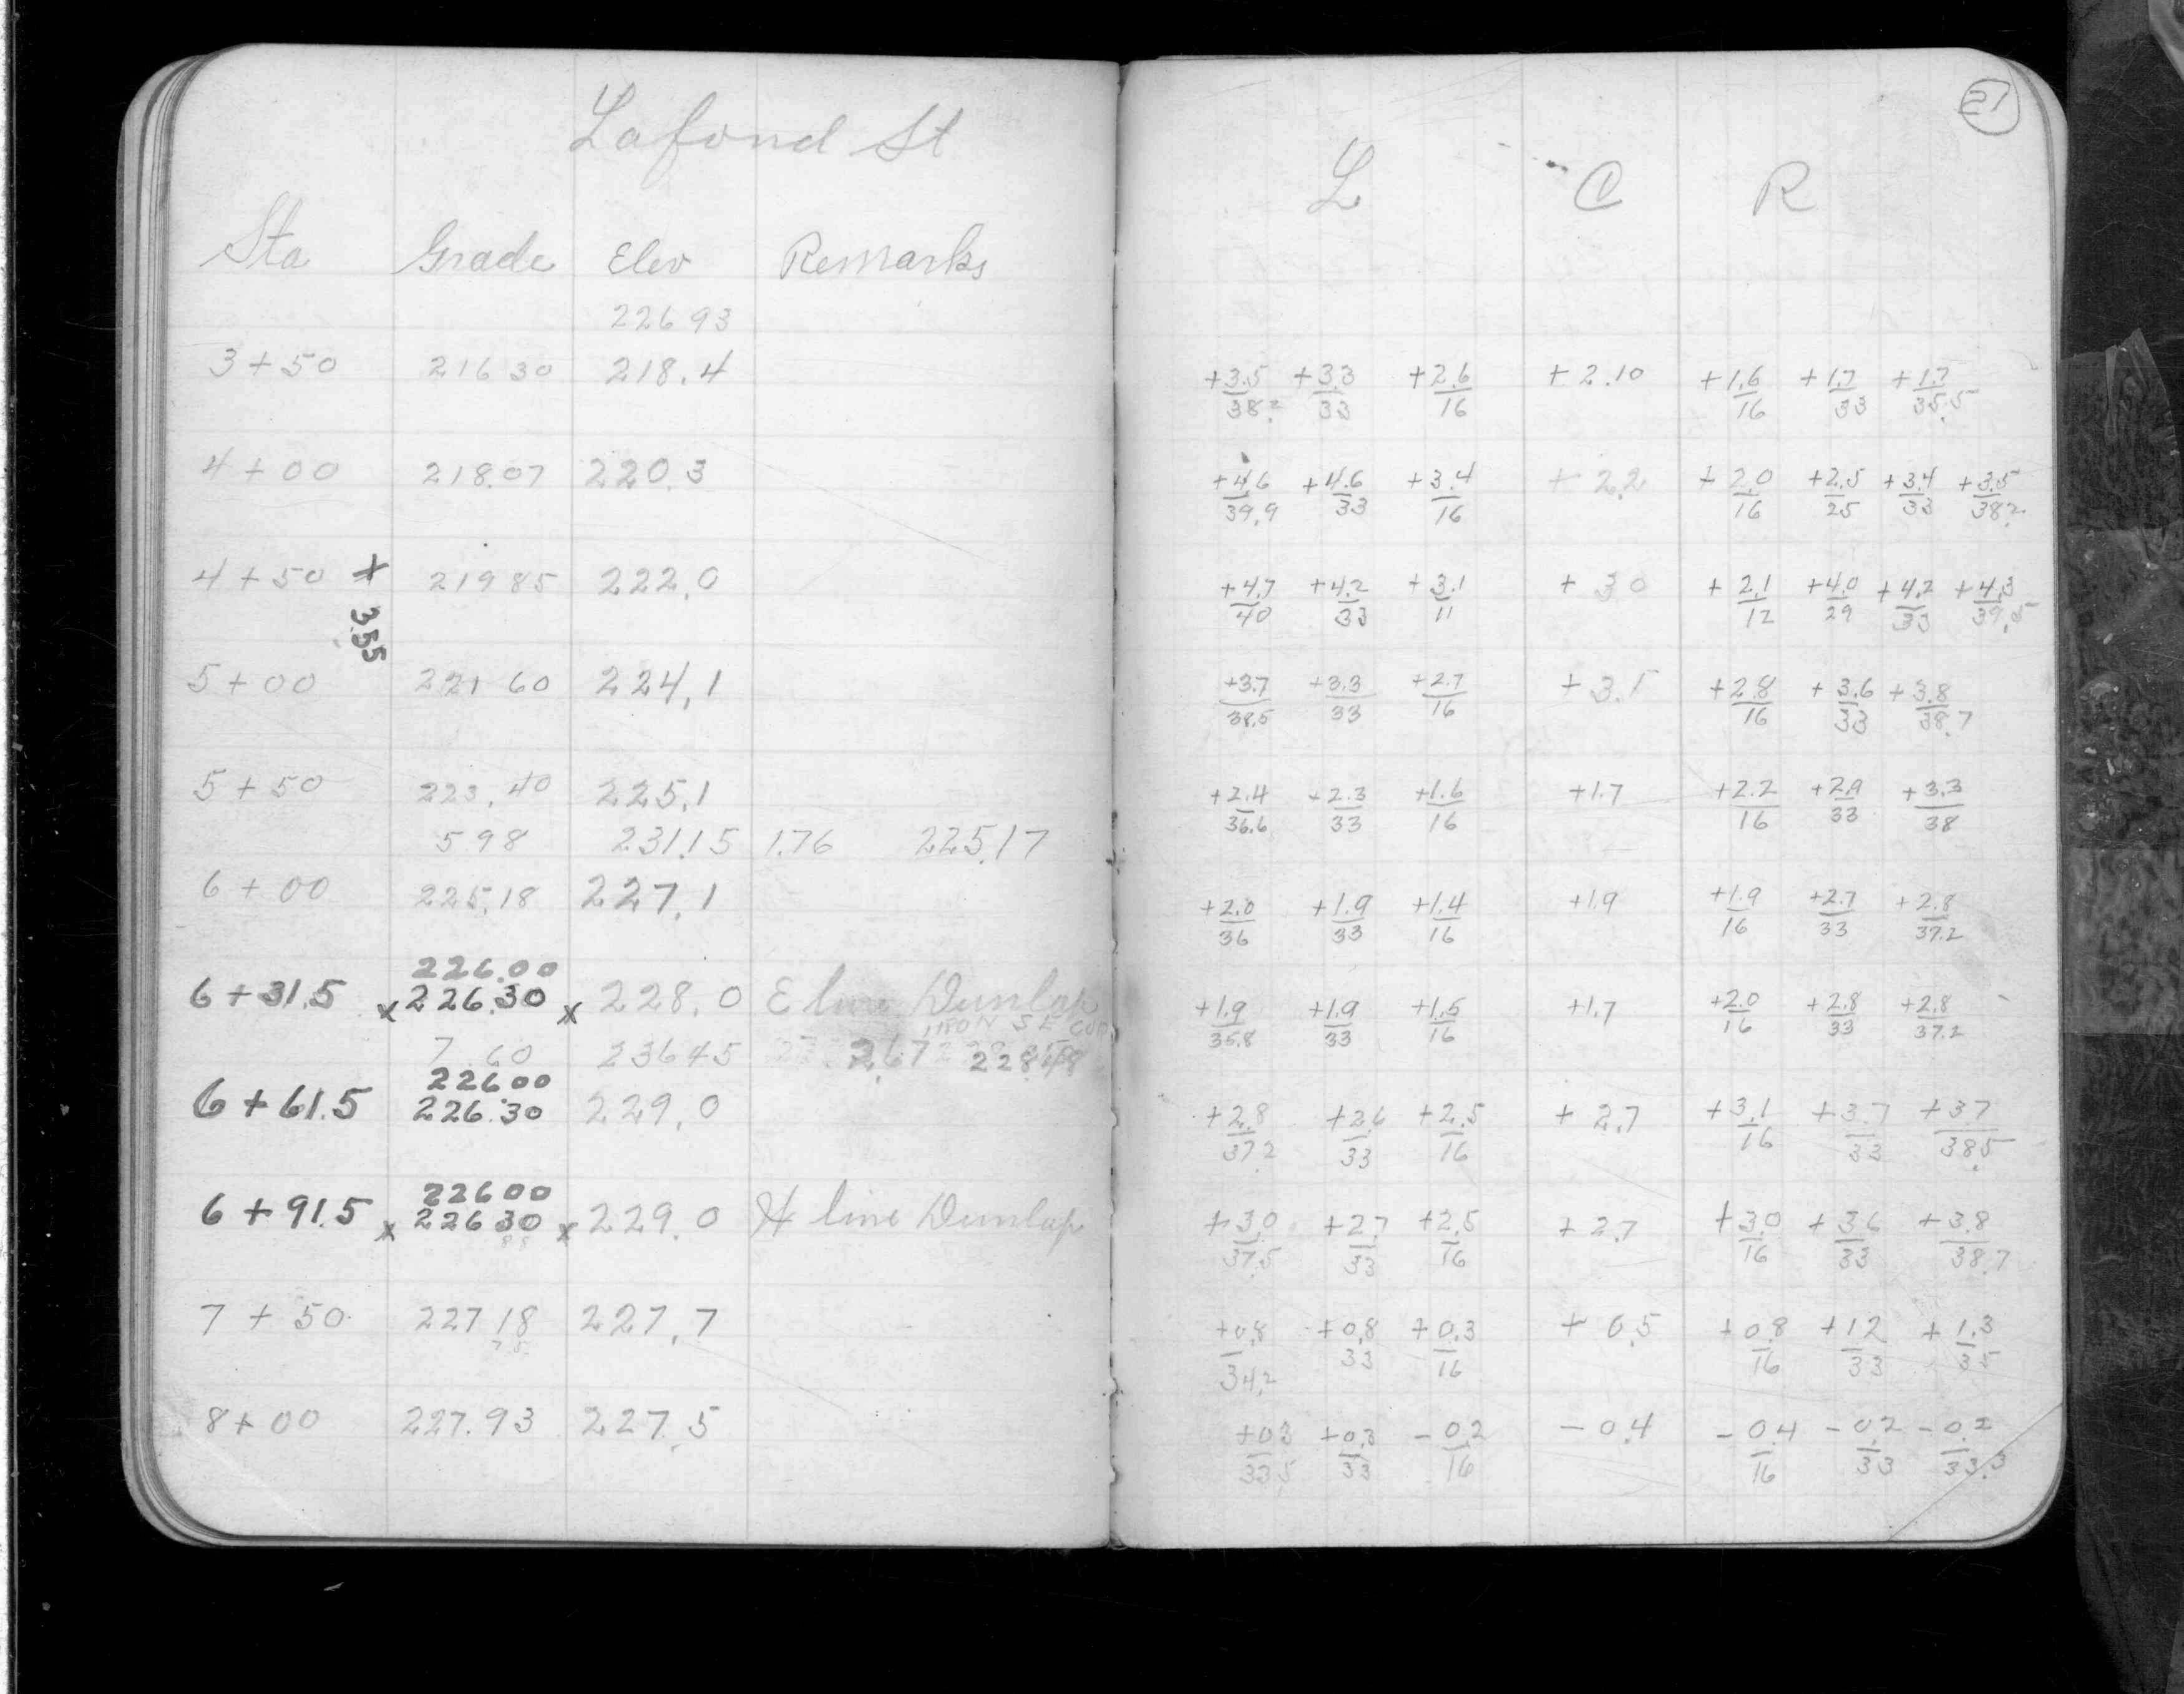 Lafond St
Sta Grade Elev Remarks
226 93
3 + 50 216 30 218.4
4 + 00 218.07 220.3
4 + 50 + 219 85 222.0
3.55
5 + 00 221 60 224.1
5 + 50 223.40 225.1
5 98 231.15 1.76 225.17
6 + 00 225.18 227.1
226.00
6 + 31.5 x 226.30 x 228.0 E line Dunlap
IRON S E
7 60 236 45 2.67 228.48
226.00
6 + 61.5 226.30 229.0
226 00
6 + 91.5 x 226 30 x 229.0 line Dunlap
88
7 + 50 227 18 227.7
75
8 + 00 227.93 227.5
21
L C R
+3.5/38.2 +3.3/33 +2.6/16 +2.10 +1.6/16 +1.7/33 +1.7/35.5
+4.6/39.9 +4.6/33 +3.4/16 +2.2 +2.0/16 +2.5/25 +3.4/33 +3.5/38.2
+4.7/40 +4.2/33 +3.1/11 +3 0 +2.1/12 +4.0/29 +4.2/33 +4.3/39.5
+3.7/38.5 +3.3/33 +2.7/16 +3.1 +2.8/16 +3.6/33 +3.8/38.7
+2.4/36.6 +2.3/33 +1.6/16 +1.7 +2.2/16 +2.9/33 +3.3/38
+2.0/36 +1.9/33 +1.4/16 +1.9 +1.9/16 +2.7/33 +2.8/37.2
+1.9/35.8 +1.9/33 +1.5/16 +1.7 +2.0/16 +2.8/33 +2.8/37.2
+2.8/37.2 +2.6/33 +2.5/16 +2.7 +3.1/16 +3.7/33 +3.7/38.5
+3.0/37.5 +2.7/33 +2.5/16 +2.7 +3.0/16 +3.6/33 +3.8/38.7
+0.8/34.2 +0.8/33 +0.3/16 +0.5 +0.8/16 +1.2/33 +1.3/35
+0.3/33.5 +0.3/33 -0.2/16 -0.4 -0.4/16 -0.2/33 -0.2/33.3